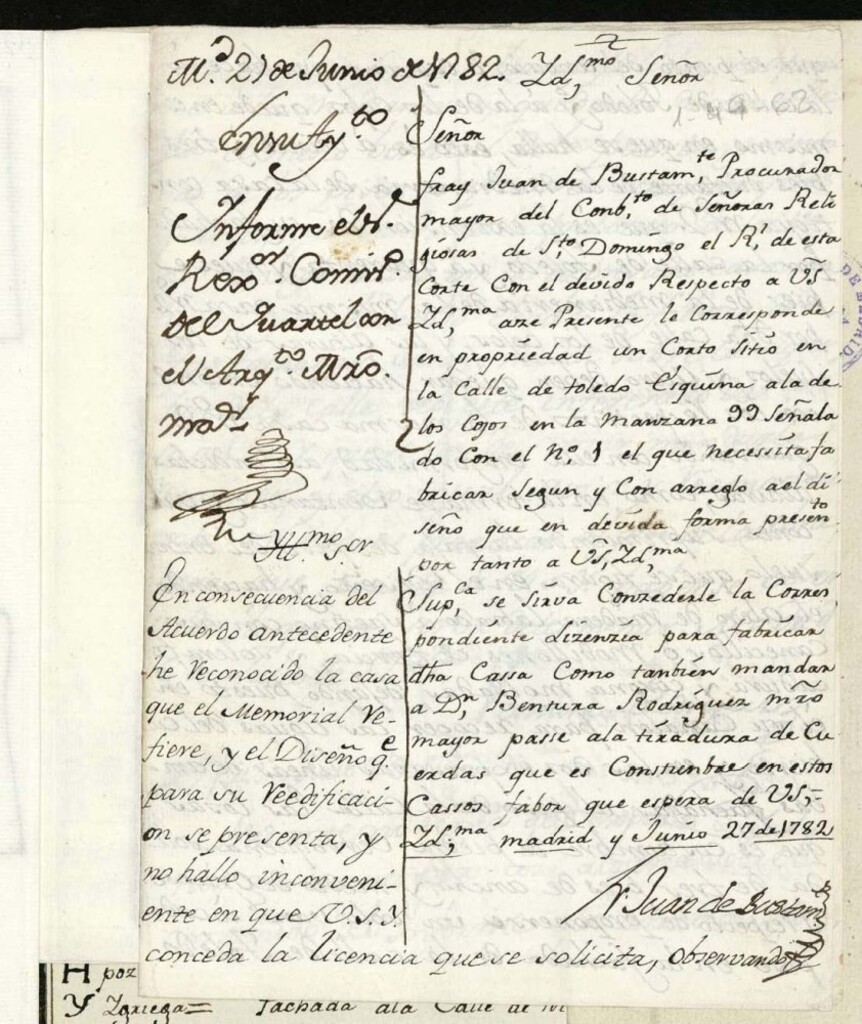 M.d 27 de Junio de 1782. Yld,mo Señor
En su Ay.to
Informe el S.r
Rexo.or Comis.o
del Quartel con
el Arq.to Mro.
mor.
Yllmo. S.or
En consecuencia del
Acuerdo antecedente
he reconocido la casa
que el Memorial re-
fiere, y el Diseño q.e
para su reedificaci-
on se presenta, y
no hallo inconveni-
ente en que V.S.Y.
conceda la licencia que se solicita, observando
Señor
fray Juan de Bustam,te Procurador
mayor del Conb,to de Señoras Reli
giosas de S,to Domingo el R,l de esta
Corte Con el devido Respecto a VS
Yld,ma aze Presente le Corresponde
en propriedad un Corto Sitio en
la Calle de toledo Esquina ala de
los Cojos en la Manzana 99 Señala
do Con el N.o 1 el que necessita fa
bricar segun y Con arreglo ael di
seño que en devida forma presen,to
por tanto a VS, Yld,ma
Sup,ca se sirva Conzederle la Corres
pondiente Lizenzia para fabricar
dha Cassa Como tanbien mandar
a D,n Bentura Rodriguez mro
mayor passe ala tiradura de Cu
erdas que es Constunbre en estos
Cassos fabor que espera de VS,
Yld,ma madrid y Junio 27 de 1782
Fr Juan de Bustam,te
H por
Y Ygriega= fachada ala Calle de